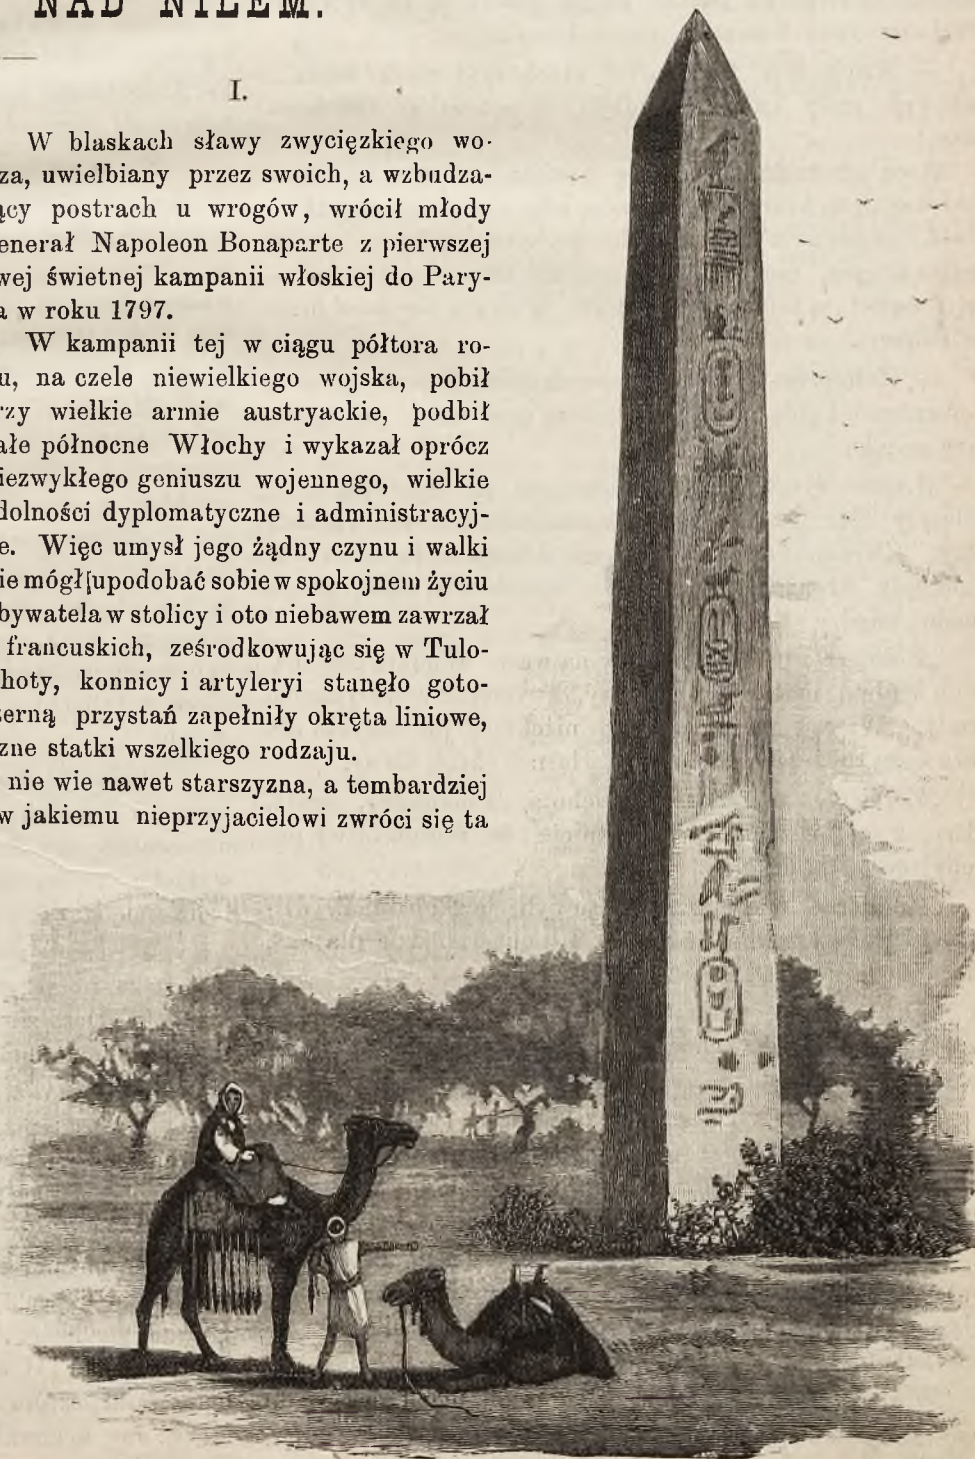 NAD NILEM.
I.
W blaskach sławy zwycięzkiego wo-
za, uwielbiany przez swoich, a wzbudza-
ący postrach u wrogów, wrócił młody
enerał Napoleon Bonaparte z pierwszej
wej świetnej kampanii włoskiej do Pary-
a w roku 1797.
W kampanii tej w ciągu półtora ro-
u, na czele niewielkiego wojska, pobił
rzy wielkie armie austryackie, podbił
ałe północne Włochy i wykazał oprócz
iezwykłego geniuszu wojennego, wielkie
dolności dyplomatyczne i administracyj-
e. Więc umysł jego żądny czynu i walki
ie mógł upodobać sobie w spokojnem życiu
bywatela w stolicy i oto niebawem zawrzał
francuskich, ześrodkowując się w Tulo-
hoty, konnicy i artyleryi stanęło goto-
erną przystań zapełniły okręta liniowe,
zne statki wszelkiego rodzaju.
nie wie nawet starszyzna, a tembardziej
w jakiemu nieprzyjacielowi zwróci się ta